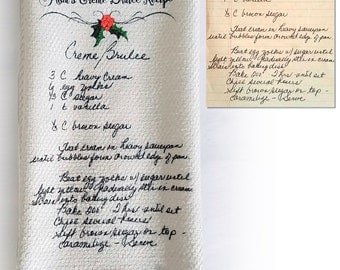 Creme Brulee
3 C heavy Cream
6 egg yolks
1/3 C sugar
1 t vanilla
1/3 C brown sugar
Heat cream in heavy saucepan
until bubbles form around edge of pan.
Beat egg yolks w/ sugar until
light yellow. Gradually stir in cream
into baking dish
Bake 2 hrs until set
Chill several hours
Sift brown sugar on top -
Caramelize - Serve
C brown sugar
Heat cream in heavy saucepan
until bubbles form around edge of pan.
Beat egg yolks w/ sugar until
light yellow. Gradually stir in cream
into baking dish
Bake 2 hrs until set
Chill several hours
Sift brown sugar on top -
Caramelize - Serve